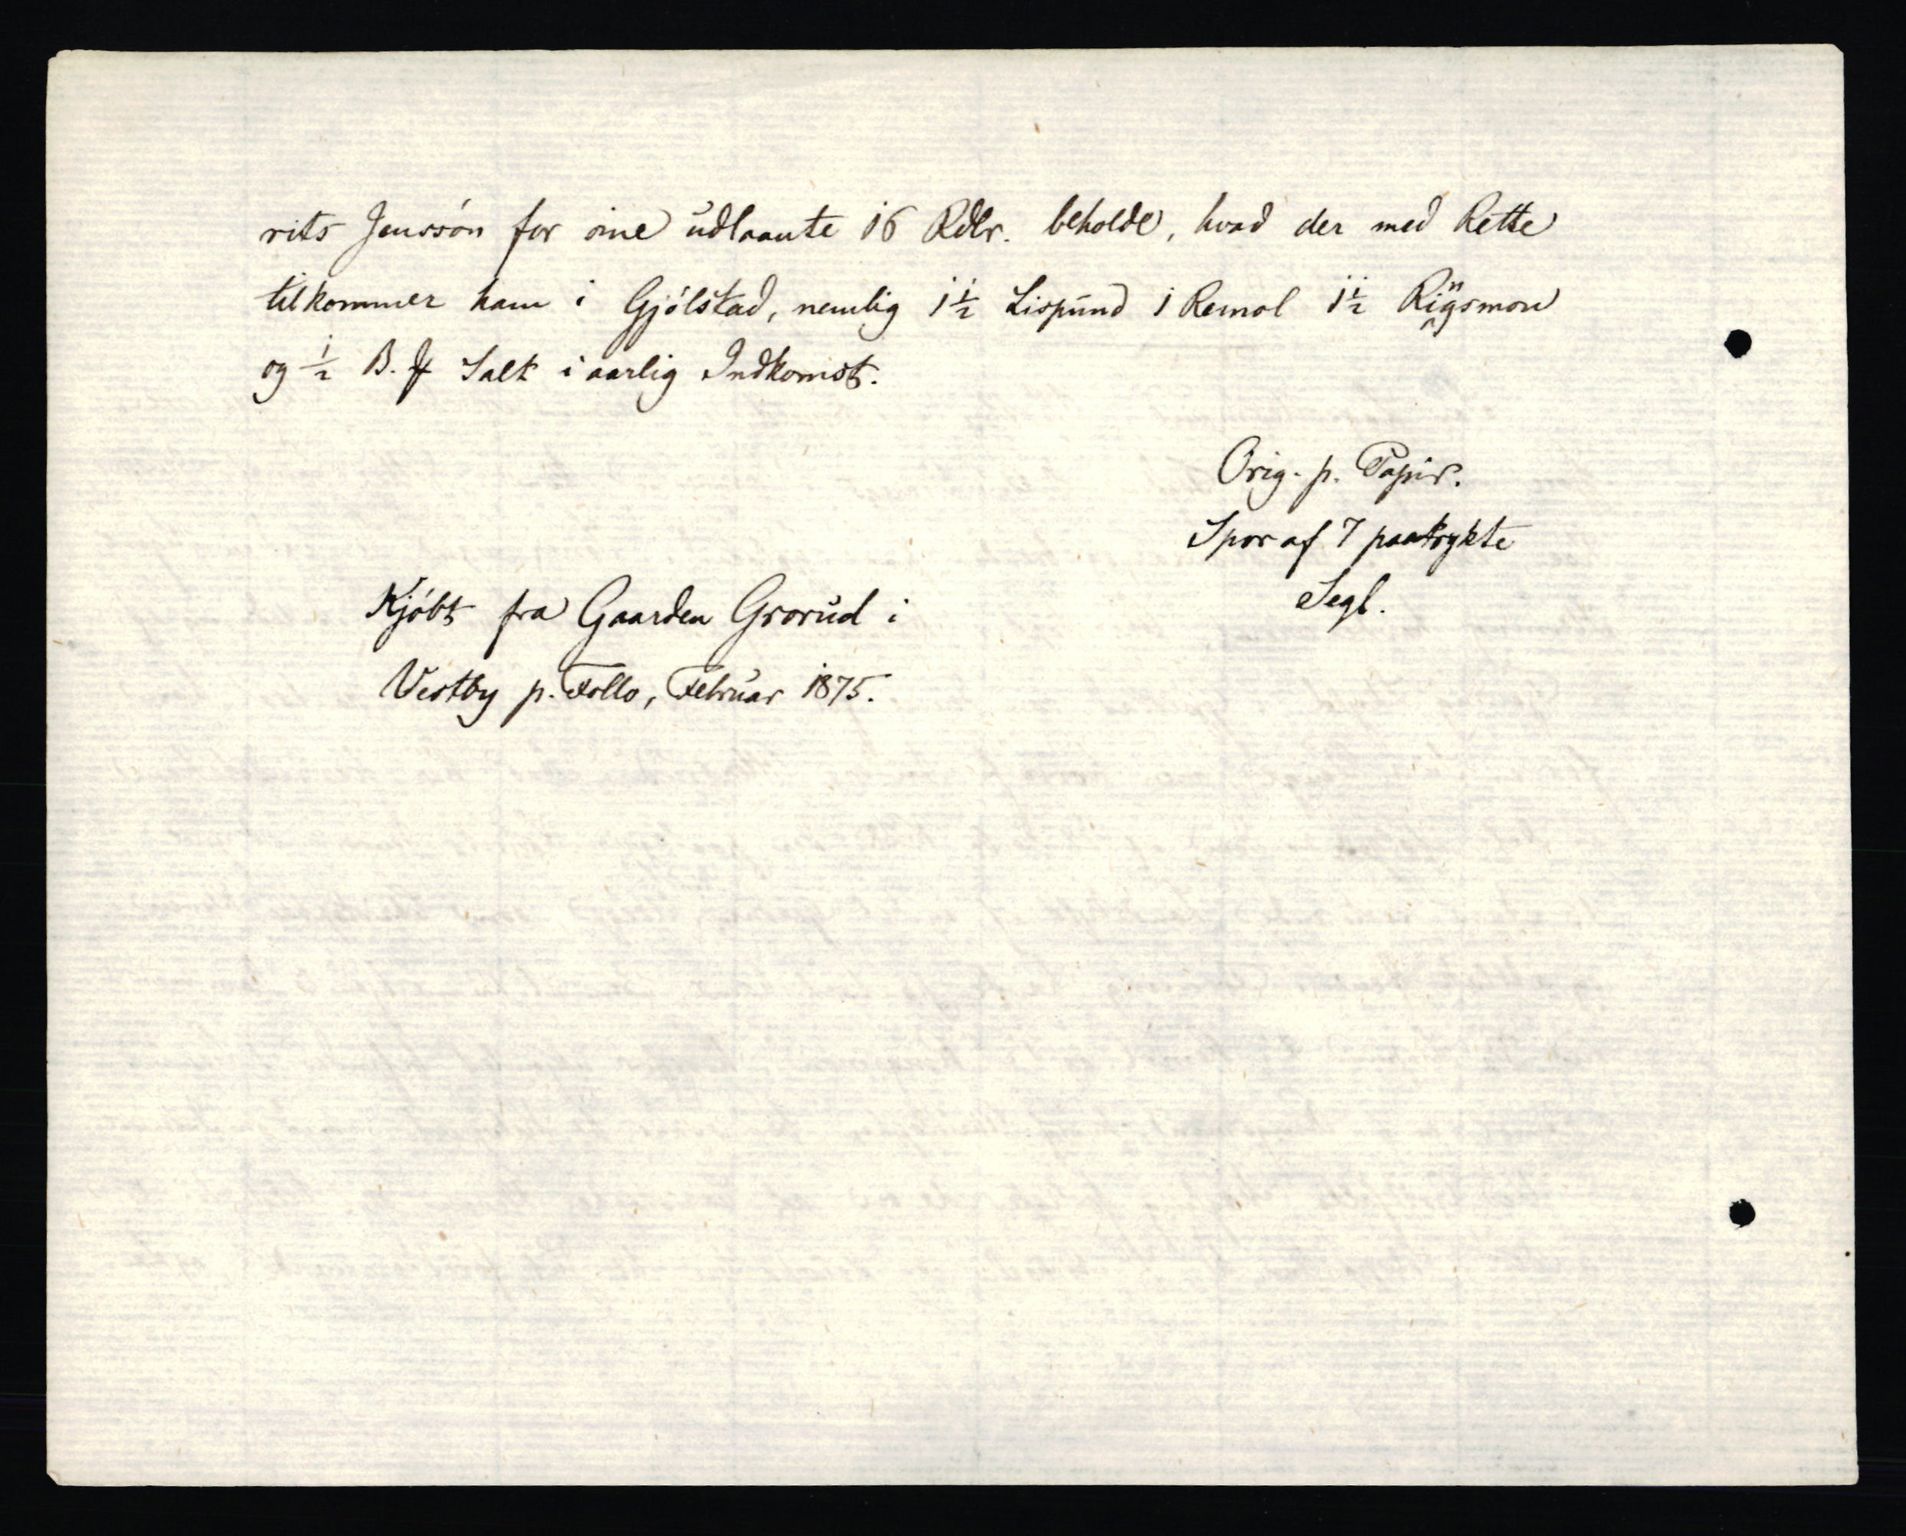 rits Jenssön for sine udlaante 16 Rdlr. beholde, hvad der med Rette
tilkommer ham i Gjölstad, nemlig 1½ Lispund 1 Remol 1½ Ringsmon
og ½ B. ℔ Salt i aarlig Indkomst.
Orig. p. Papir.
Spor af 7 paatrykte
Segl.
Kjöbt fra Gaarden Grorud i
Vestby p. Follo, Februar 1875.